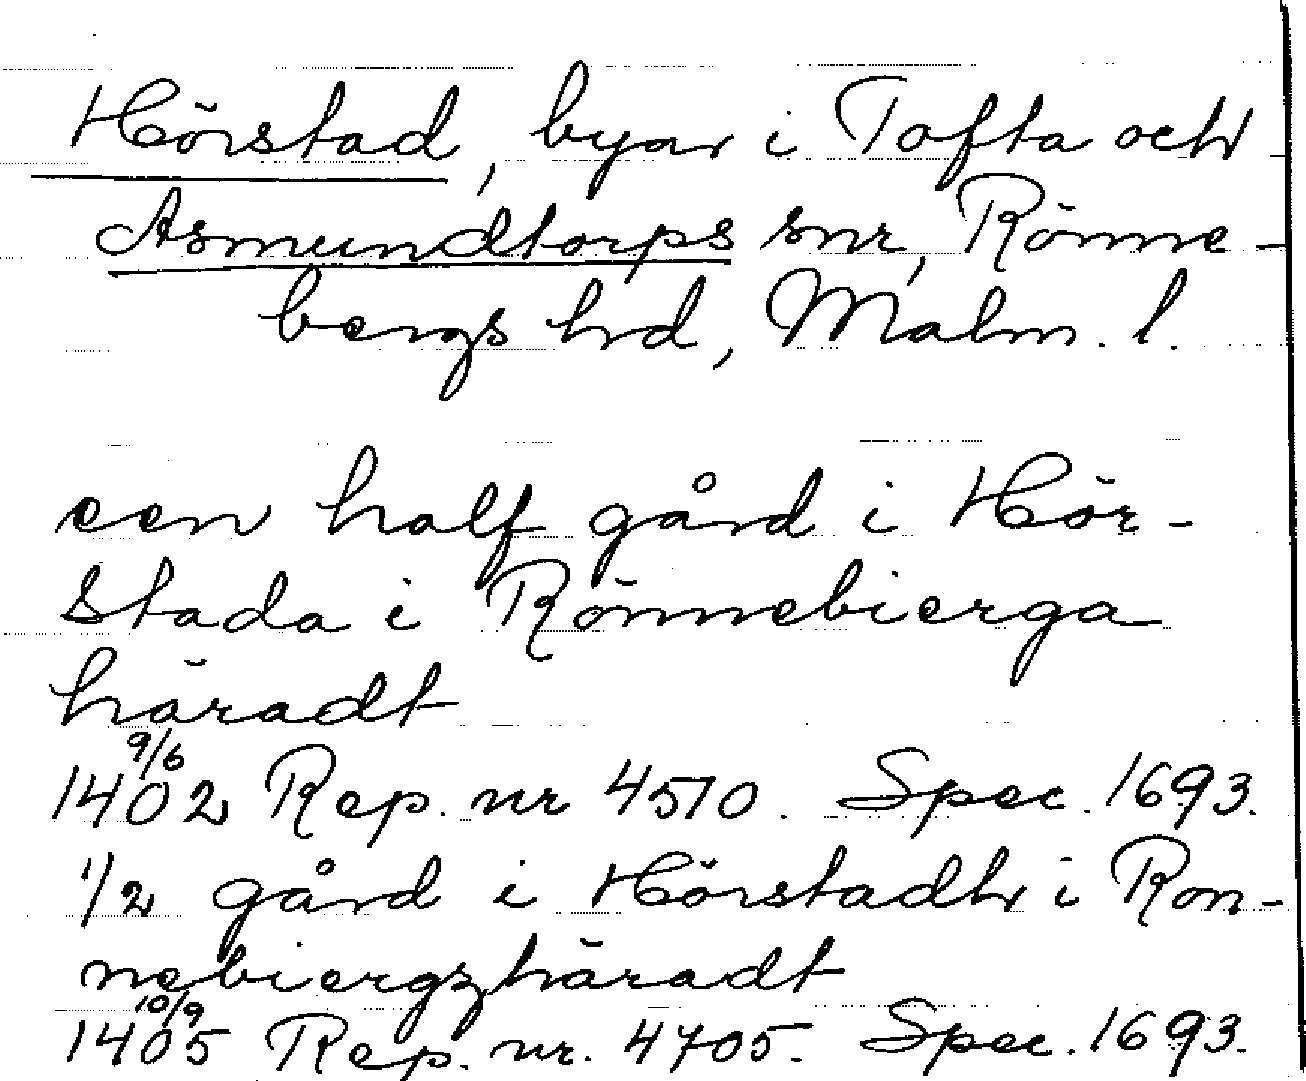 Hörstad, byar i Tofta och
Asmundtorps snr, Rönne-
bergs hd, Malm. l.
een half gård i Hör-
stada i Rönnebierga
häradt
1402 9/6 Rep. nr 4510. Spec. 1693.
1/2 gård i Hörstadh i Rön-
nebiergzhäradt
1405 10/9 Rep. nr. 4705. Spec. 1693.